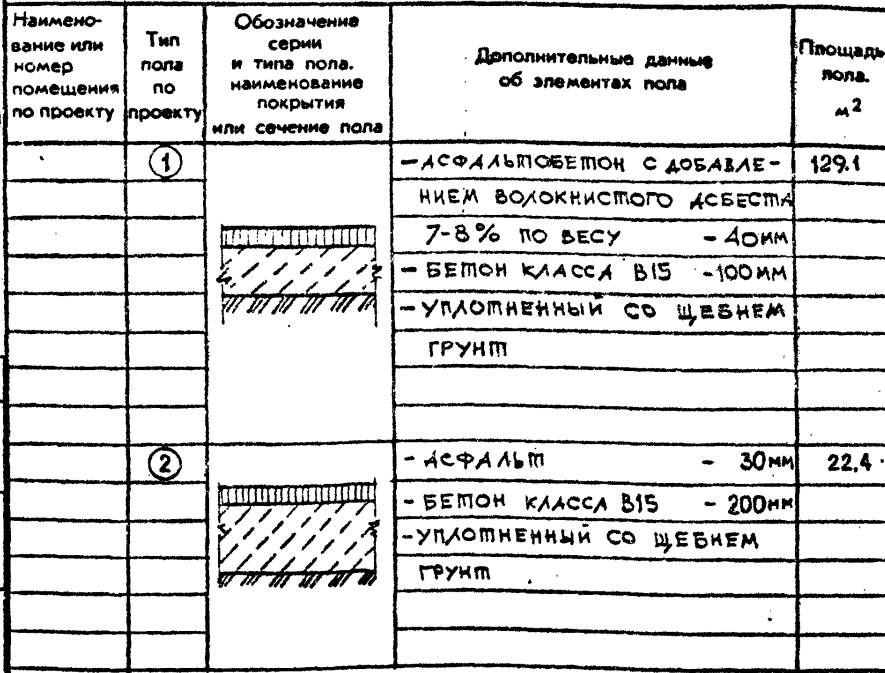 Наимено-
вание или
номер
помещения
по проекту
Тип
пола
по
проекту
Обозначение
серии
и типа пола.
наименование
покрытия
или сечение пола
Дополнительные данные
об элементах пола
Площадь
пола.
м2
1
- АСФАЛЬТОБЕТОН С ДОБАВЛЕ-
129.1
НИЕМ ВОЛОКНИСТОГО АСБЕСТА
7-8% ПО ВЕСУ - 40ММ
- БЕТОН КЛАССА В15 -100ММ
- УПЛОТНЕННЫЙ СО ЩЕБНЕМ
ГРУНТ
2
- АСФАЛЬТ - 30ММ
22,4
- БЕТОН КЛАССА В15 - 200ММ
- УПЛОТНЕННЫЙ СО ЩЕБНЕМ
ГРУНТ